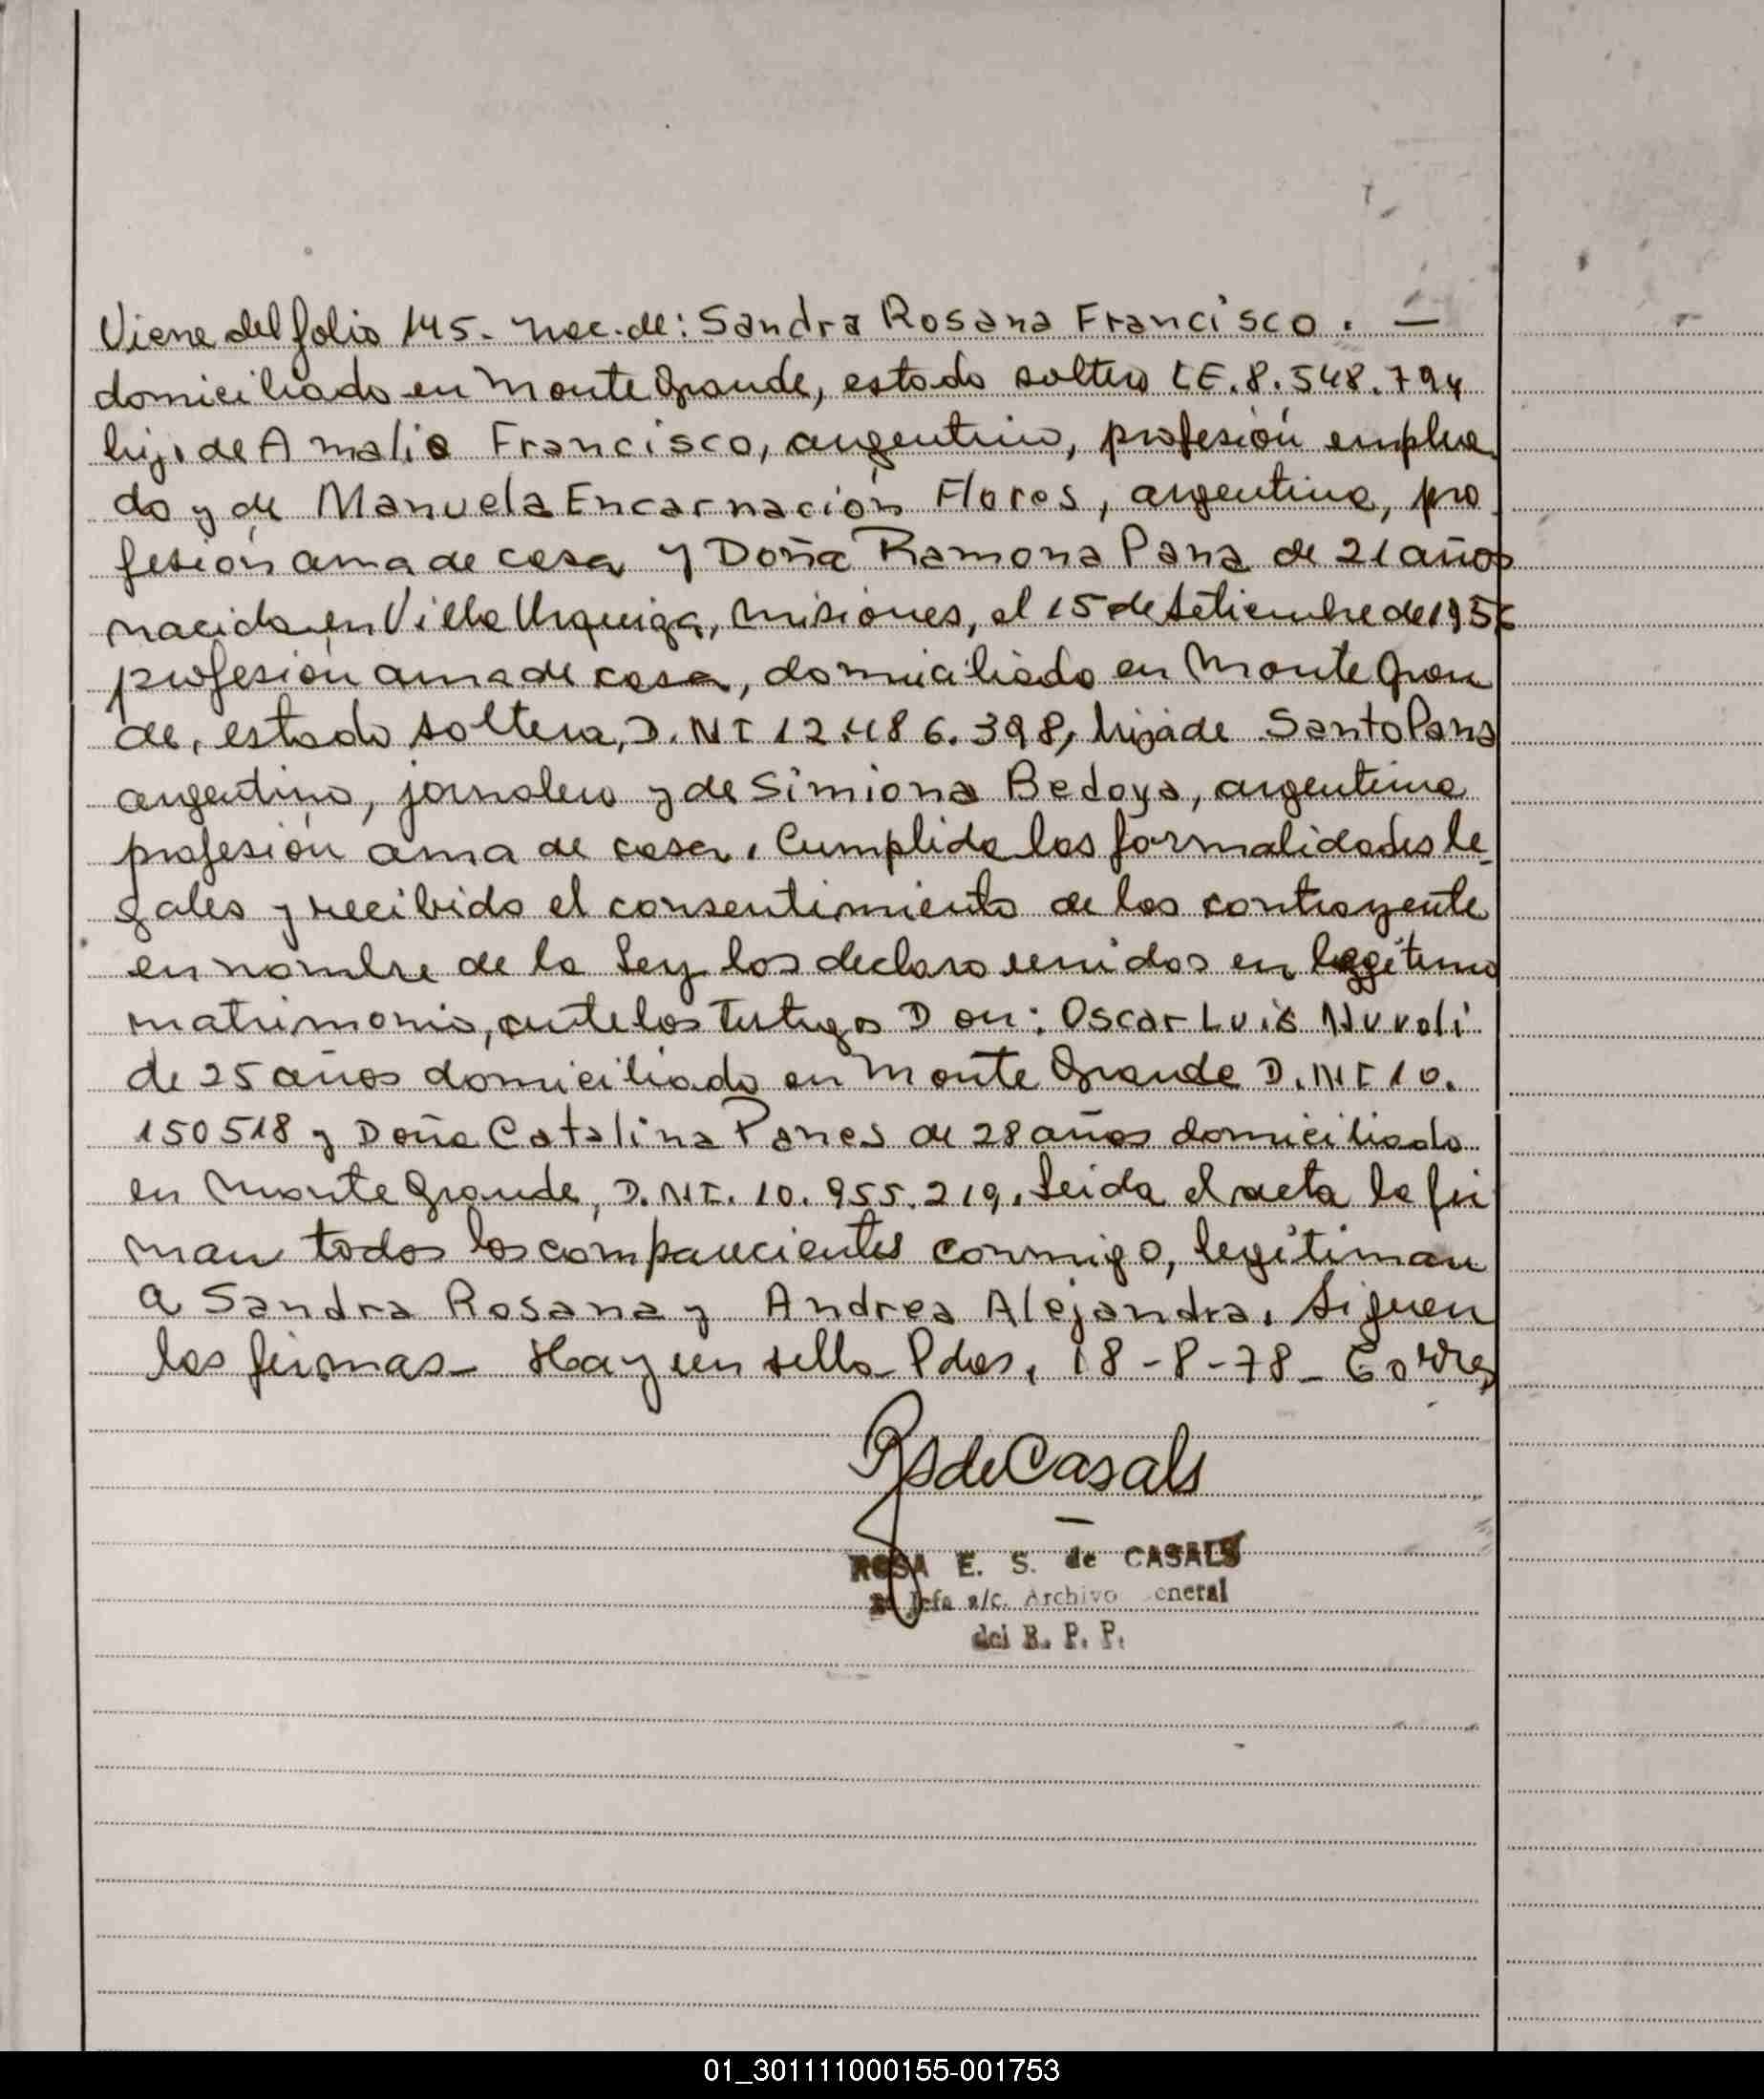 Viene del folio 145. nac. de: Sandra Rosana Francisco. —
domiciliado en Monte Grande, estado soltero L.E. 8.548.794
hijo de Amalio Francisco, argentino, profesión emplea
do y de Manuela Encarnación Flores, argentina, pro
fesión ama de casa y Doña Ramona Pana de 21 años
nacida en Villa Urquiza, Misiones, el 15 de Setiembre de 1956
profesión ama de casa, domiciliada en Monte Gran
de, estado soltera, D.NI 12.486.398, hija de Santo Pana
argentino, jornalero y de Simiona Bedoya, argentina
profesión ama de casa. Cumplida las formalidades le
gales y recibido el consentimiento de los contrayente
en nombre de la Ley los declaro unidos en legítimo
matrimonio, ante los testigos Don: Oscar Luis
de 25 años domiciliado en Monte Grande D.NI 10.
150518 y Doña Catalina Panes de 28 años domiciliada
en Monte Grande, D.NI. 10.955.219. Leida el acta la fir
man todos los comparecientes conmigo, legitiman
a Sandra Rosana y Andrea Alejandra. Siguen
las firmas - Hay un sello - Pdos, 18-8-78 -
RS de Casals
ROSA E. S. de CASALS
Jefa a/c. Archivo General
del R. P. P.
01_301111000155-001753